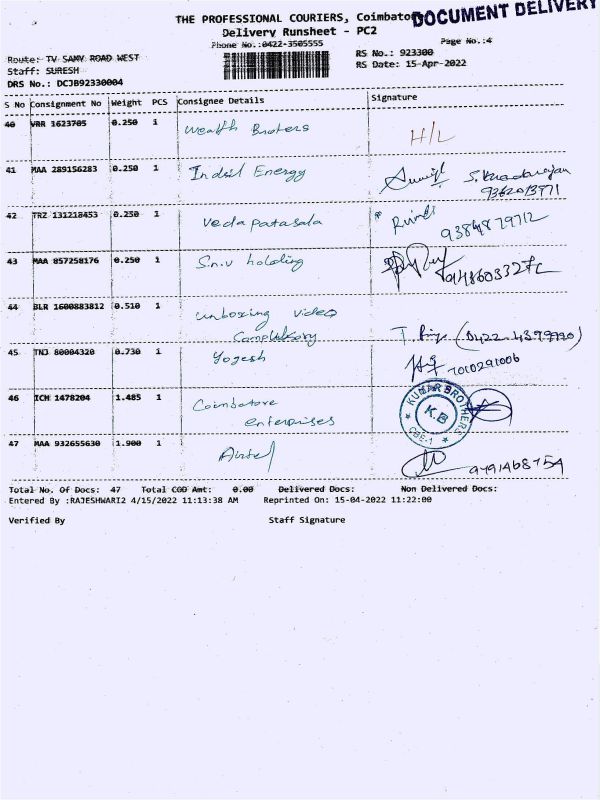 THE PROFESSIONAL COURIERS, Coimbato
DOCUMENT DELIVERY
Delivery Runsheet - PC2
Phone No.:0422-3505555
Page No.:4
Route: TV SAMY ROAD WEST
RS No.: 923300
Staff: SURESH
RS Date: 15-Apr-2022
DRS No.: DCJB92330004
S No Consignment No Weight PCS Consignee Details Signature
40 VRR 1623705 0.250 1 Wealth Broters H/L
41 MAA 289156283 0.250 1 Indsil Energy
9362013771
42 TRZ 131218453 0.250 1 Veda patasala
9384879712
43 MAA 857258176 0.250 1 S.n.v holding
44 BLR 1600883812 0.510 1 unboxing video
45 TNJ 80004320 0.730 1 Yogesh 7010291006
46 ICH 1478204 1.485 1 Coimbatore
enterprises
KUMAR BROTHERS
K.B
CBE-1
47 MAA 932655630 1.900 1 Airtel
Total No. Of Docs: 47 Total COD Amt: 0.00 Delivered Docs: Non Delivered Docs:
Entered By :RAJESHWARI2 4/15/2022 11:13:38 AM Reprinted On: 15-04-2022 11:22:00
Verified By Staff Signature